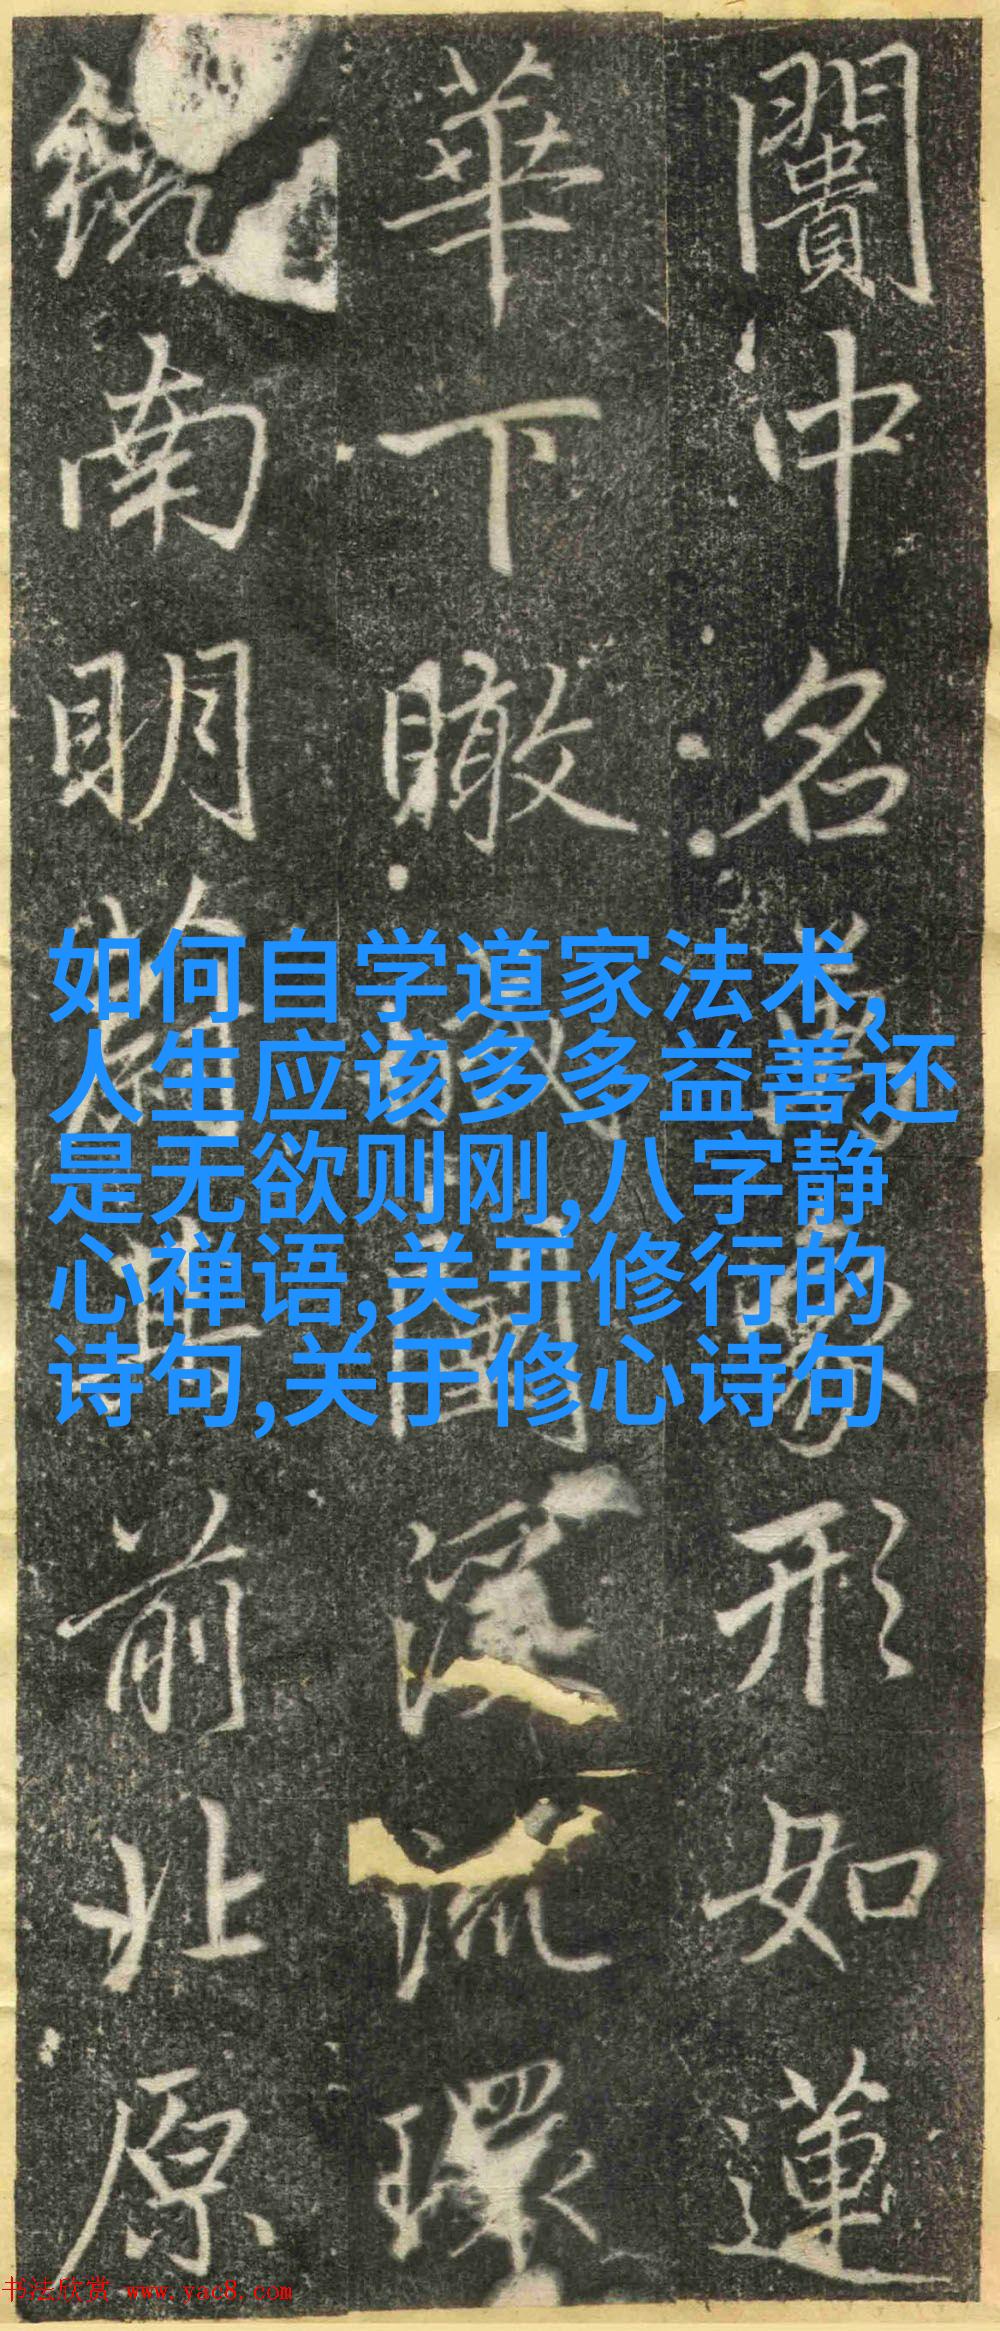 闠中名形如蓮
華下瞰環
南明前北原
如何自学道家法术,
人生应该多多益善还
是无欲则刚,八字静
心禅语,关于修行的
诗句,关于修心诗句
书法欣赏 www.yac8.com